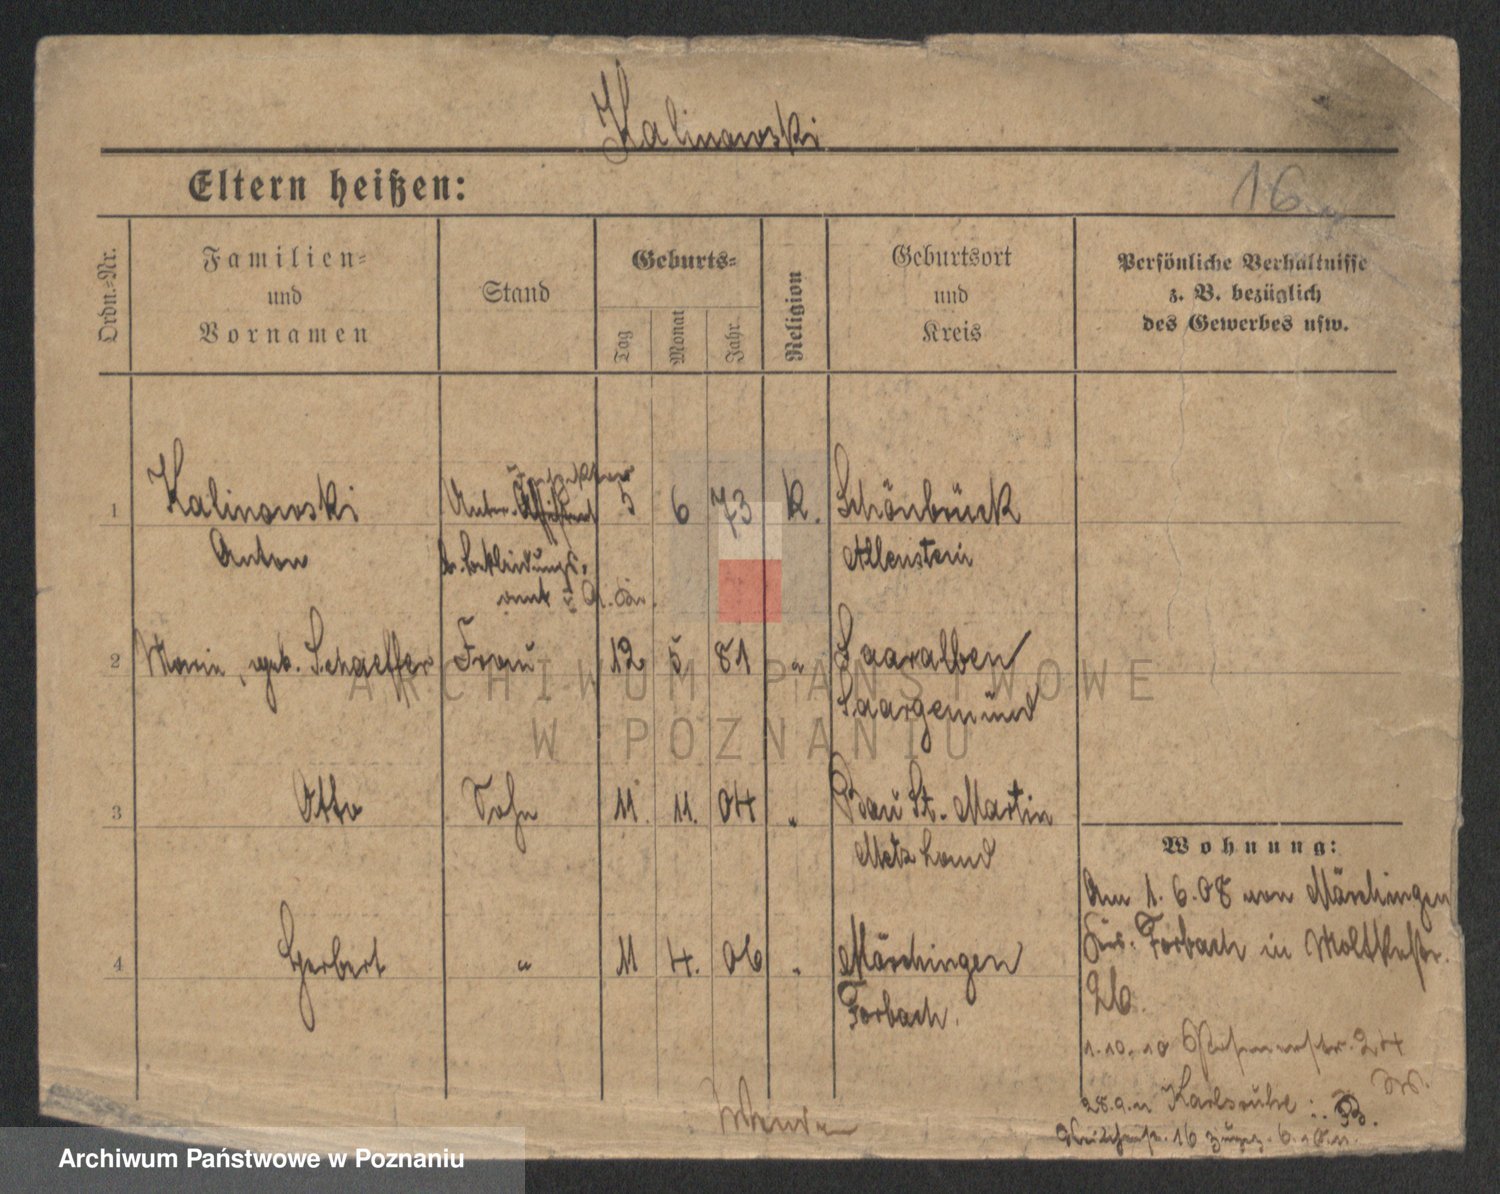 Kalinowski
Eltern heißen:
16
Ordn.-Nr.
Familien-
und
Vornamen
Stand
Geburts-
Tag
Monat
Jahr
Religion
Geburtsort
und
Kreis
Persönliche Verhältnisse
z. B. bezüglich
des Gewerbes usw.
1 Kalinowski Unter- 5 6 73 k. Schönbrück
Anton Bekleidungs- Allenstein
amt
2 Marie, geb. Schaeffer Frau 12 5 81 " Saaralben
Saargemünd
3 Otto Sohn 11. 11. 04 " Bau St. Martin
Metz Land
4 Herbert " 11 4. 06 " Mörchingen
Forbach.
Wohnung:
Am 1.6.08 von Mörchingen
Forbach in Moltkestr.
26.
1.10.10 24
28.9.11 Karlsruhe
16
ARCHIWUM PAŃSTWOWE
W POZNANIU
Archiwum Państwowe w Poznaniu